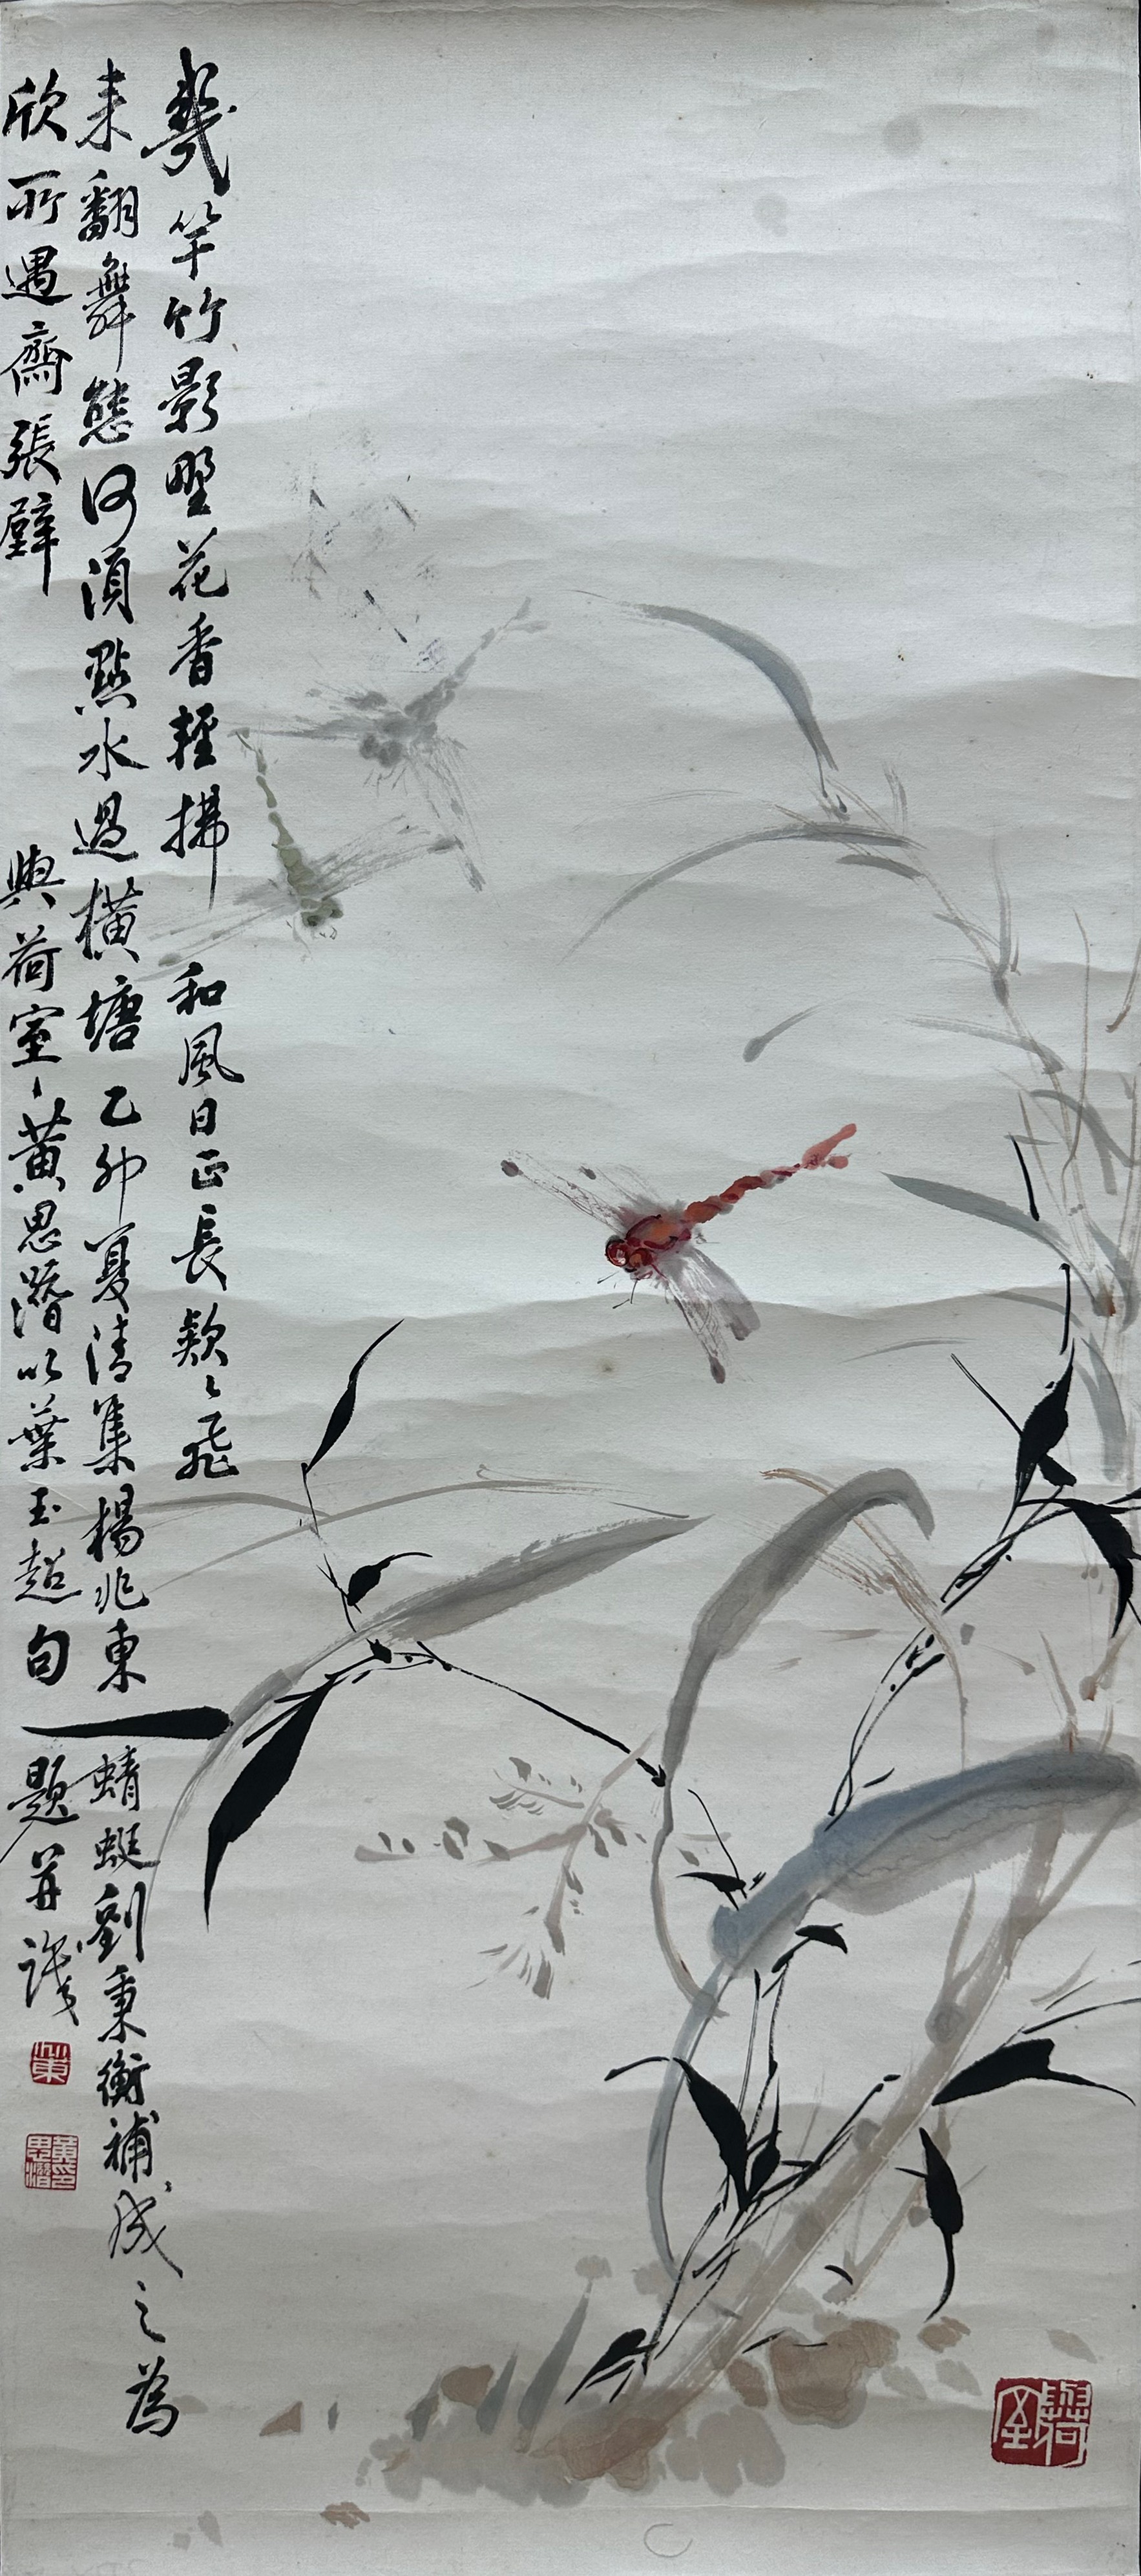 幾竿竹影野花香輕拂和風日正長欵〻飛
來翻舞態何須點水過橫塘乙卯夏清集楊兆東蜻蜓劉秉衡補成之為
欣所遇齋張壁 與荷室主黃思潛以葉玉超句題並識
黃思潛印
與荷室